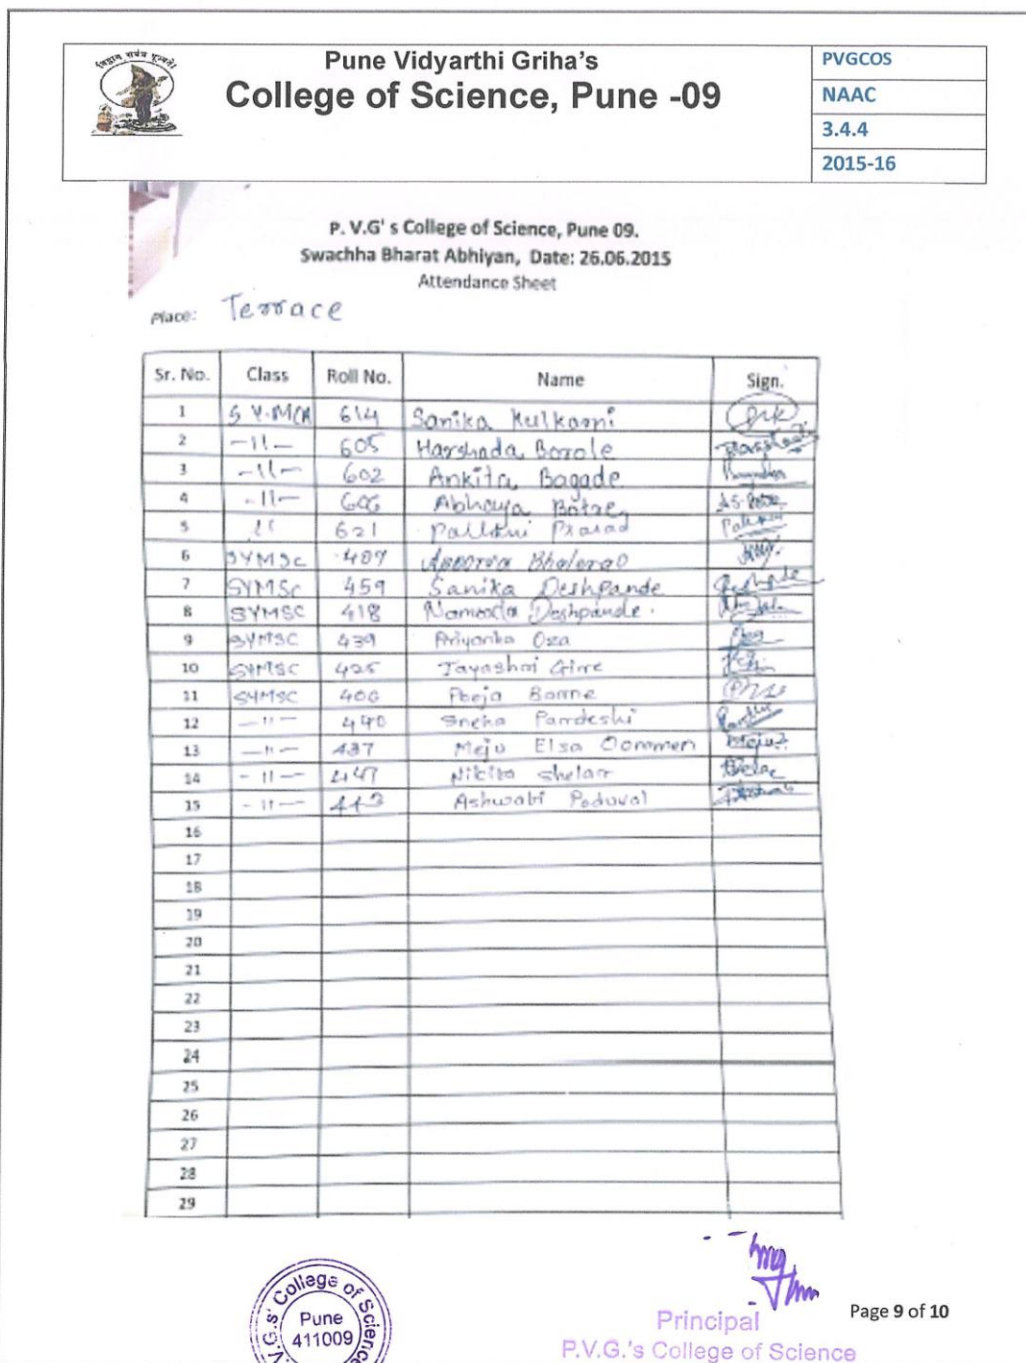 विद्वान् सर्वत्र पूज्यते।
Pune Vidyarthi Griha’s
College of Science, Pune -09
PVGCOS
NAAC
3.4.4
2015-16
P. V.G' s College of Science, Pune 09.
Swachha Bharat Abhiyan, Date: 26.06.2015
Attendance Sheet
Place: Terrace
Sr. No. Class Roll No. Name Sign.
1 S Y.MCA 614 Sanika Kulkarni
2 -11- 605 Harshada Borole
3 -11- 602 Ankita Bagade
4 -11- 606 Abhaya Botre
5 11 621 Pallavi Prasad
6 SYMSC 407 Apoorva Bhalerao
7 SYMSc 459 Sanika Deshpande
8 SYMSC 418 Namrata Deshpande.
9 SYMSC 439 Priyanka Oza
10 SYMSC 425 Jayashri Girre
11 SYMSC 406 Pooja Borne
12 -11- 440 Sneha Pardeshi
13 -11- 437 Meju Elsa Oommen
14 -11- 447 Nikita Shelar
15 -11- 443 Ashwati Poduval
16
17
18
19
20
21
22
23
24
25
26
27
28
29
P.V.G.s' College of Science
Pune
411009
Principal
P.V.G.'s College of Science
Page 9 of 10